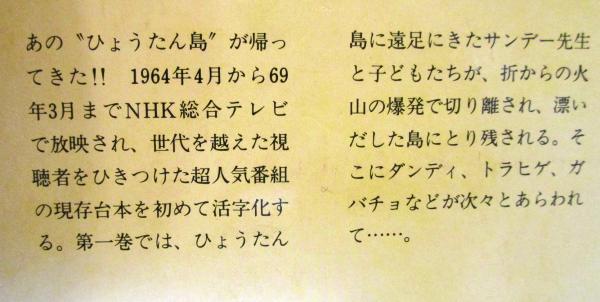 あの〝ひょうたん島〟が帰っ
てきた!! 1964年4月から69
年3月までNHK総合テレビ
で放映され、世代を越えた視
聴者をひきつけた超人気番組
の現存台本を初めて活字化す
る。第一巻では、ひょうたん
島に遠足にきたサンデー先生
と子どもたちが、折からの火
山の爆発で切り離され、漂い
だした島にとり残される。そ
こにダンディ、トラヒゲ、ガ
バチョなどが次々とあらわれ
て……。